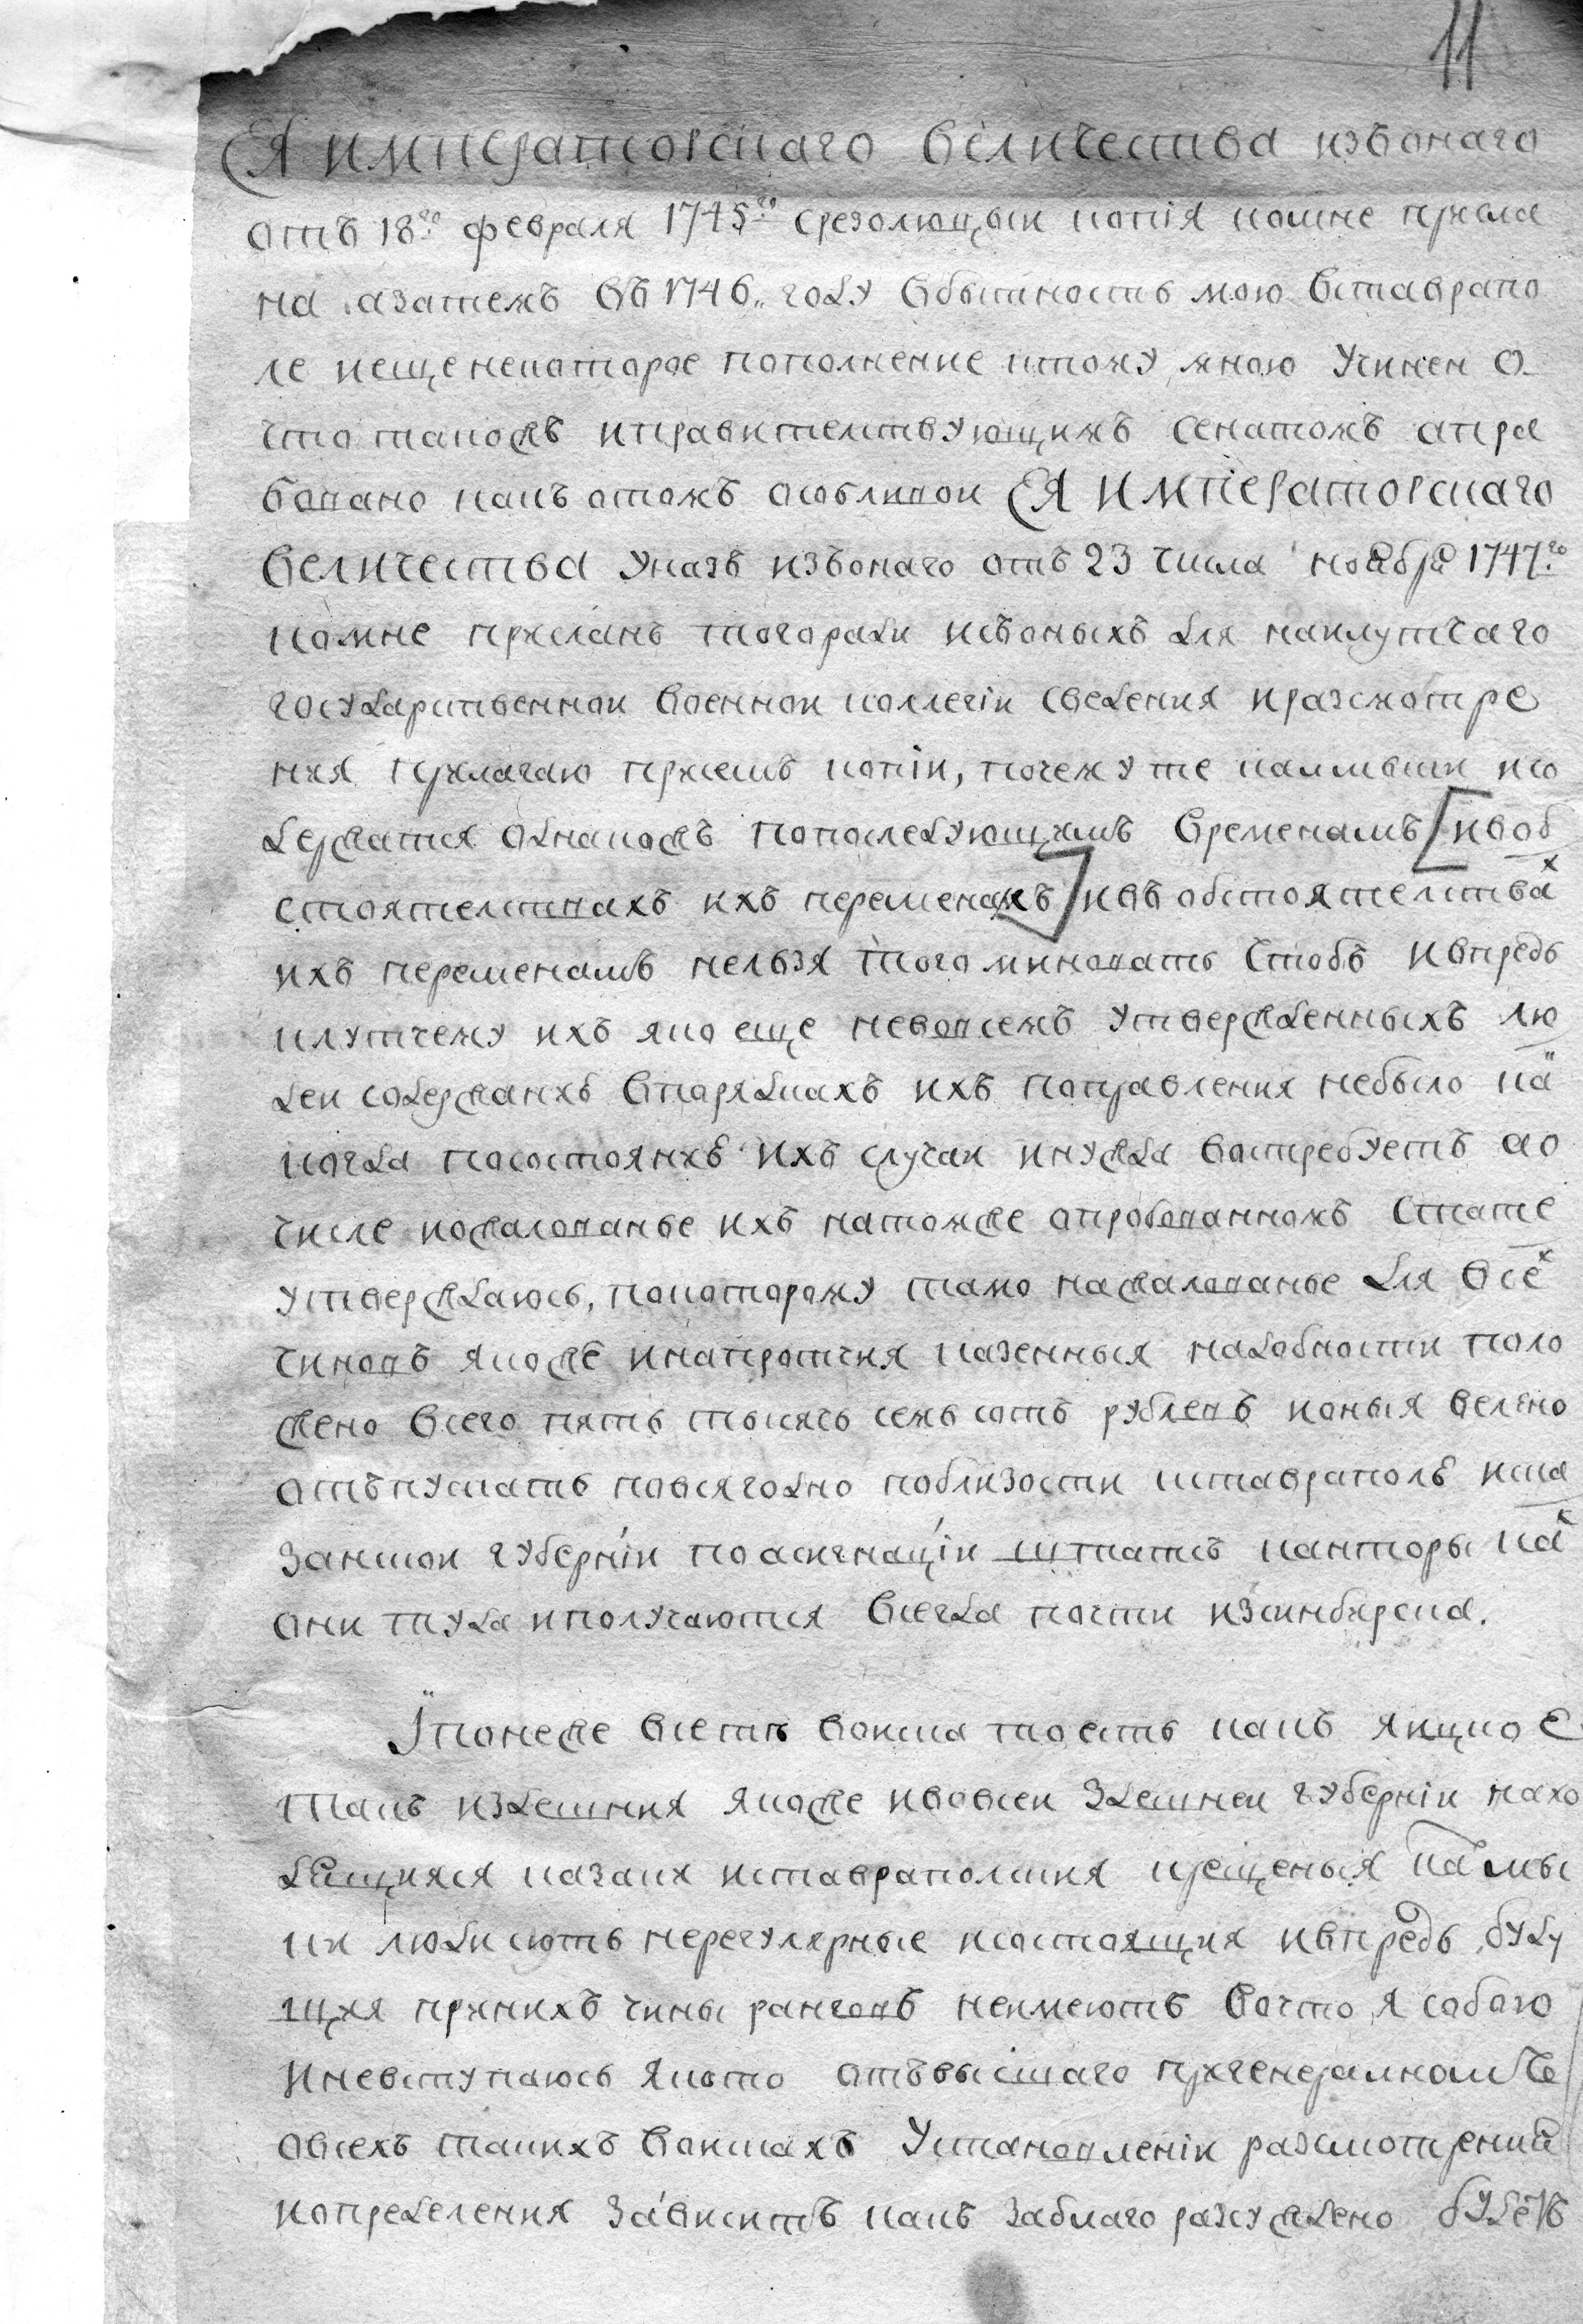 11
Ея императорскаго величества изъ онаго
отъ 18го февраля 1745го срезолюцыи копія комне присла
на азатемъ въ 1746„ году вбытность мою вставрапо
ле иеще некоторое пополнение ктому мною учинен о
что такожъ иправителствующимъ сенатомъ апра
бовано какъ отомъ особливои Ея императорскаго
величества указъ изъ онаго отъ 23 числа ноября 1747го
комне присланъ того ради исъоныхъ для наилутчаго
государственнои военнои коллегіи сведения иразсмотре
ния прилагаю присемъ копіи, почему те калмыки исо
держатся однакожъ попоследующимъ временамъ [ивоб
стоятелствахъ ихъ переменахъ] ивъ обстоятелствах
ихъ переменамъ нелзя того миновать чтобъ ивпредь
клутчему ихъ яко еще невовсемъ утвержденныхъ лю
деи содержаниѣ впорядкахъ ихъ поправления небыло ка
когда посостояниѣ ихъ случаи инужда востребуетъ ао
числе ижалованье ихъ натомже опробованномъ стате
утверждаюсь, покоторому тамо нажалованье для всех
чиновъ якоже инапротчия казенныя надобности поло
жено всего пять тысячь семь сотъ рублевъ коныя велено
отъпускать повсягодно поблизости кставраполѣ иска
занскои губерніи поасигнаціи штатъ канторы как
они туда иполучаются всегда почти изсинбирска.
Iпонеже всеть воиска тоесть какъ яицкое
такъ издешния якоже ивовсеи здешнеи губерніи нахо
дящияся казаки иставрапольския крещеныя калмы
ки люди суть нерегулярные инастоящия ивпредь буду
щия принихъ чины ранговъ неимеютъ вочто я собою
иневступаюсь якото отъвысшаго пригенералномъ
овсехъ такихъ воискахъ установленіи разсмотрения
иопределения зависитъ какъ заблаго разсуждено будетъ